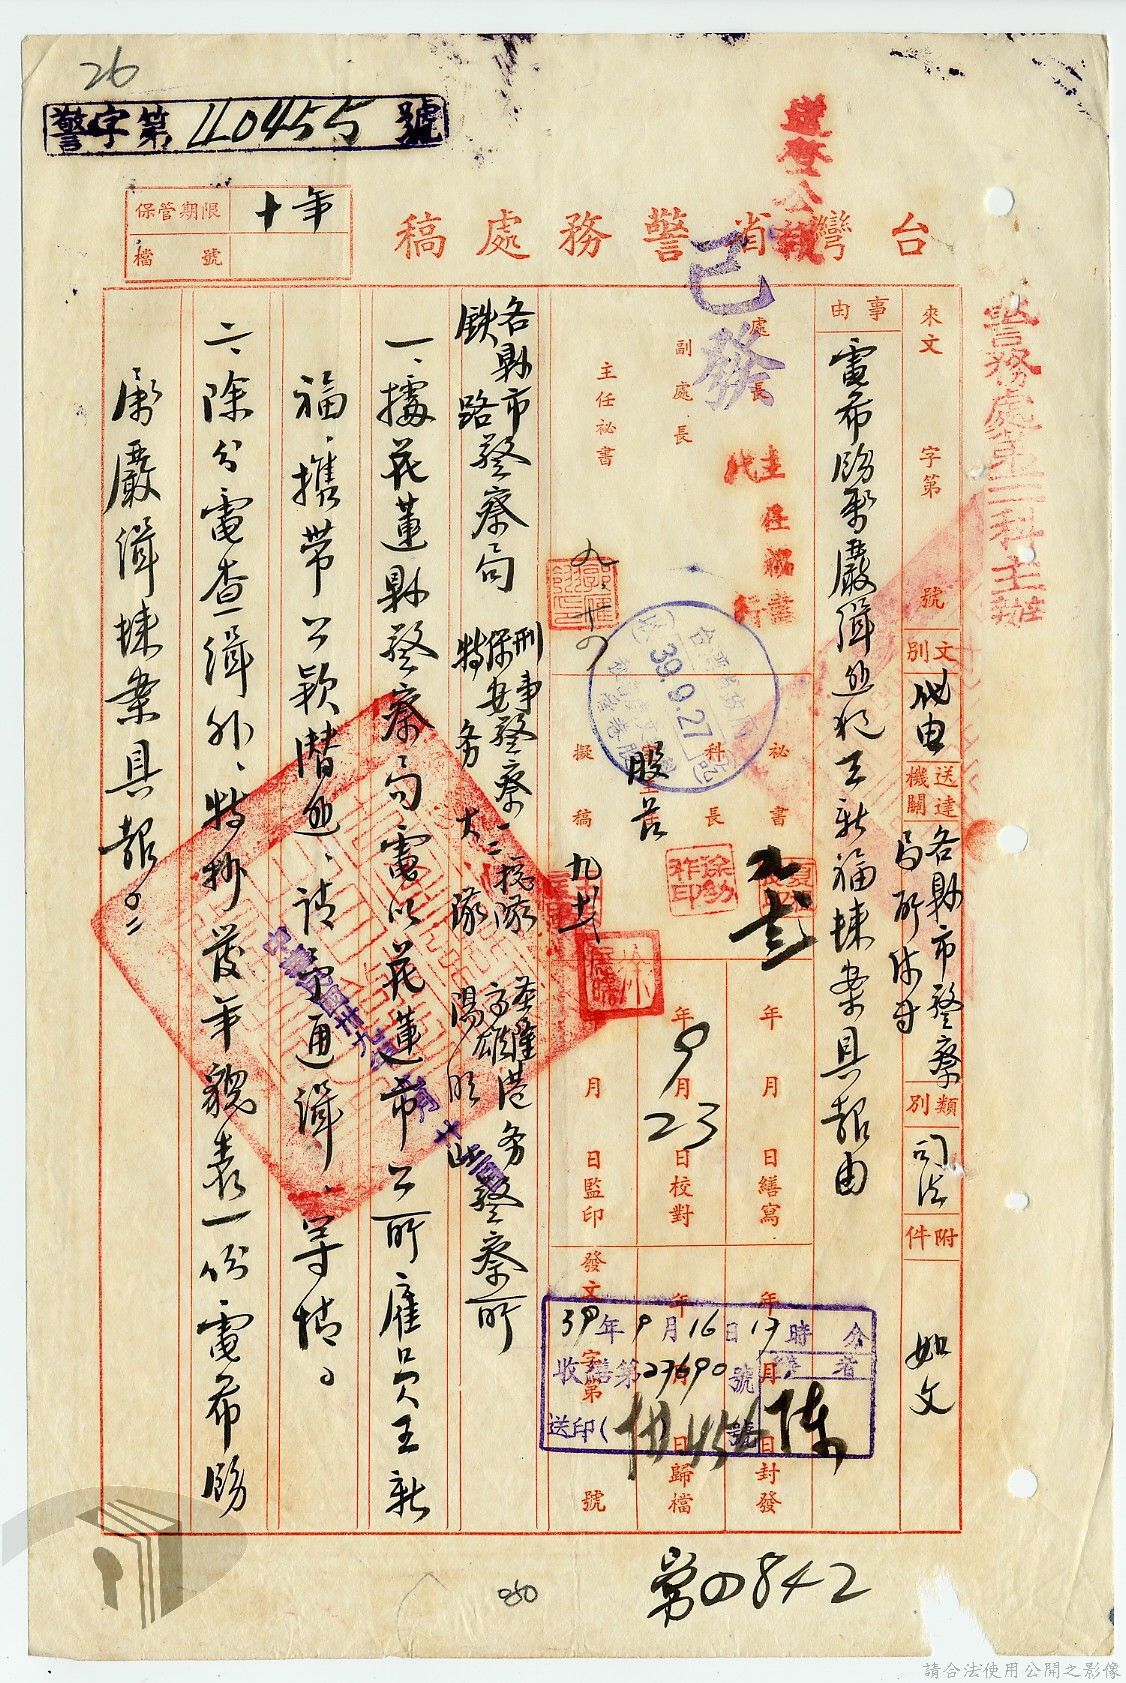 26
警字第 40455 號
保管期限 十年
檔號
台灣省警務處稿
登省公報
已發
警務處第二科主辦
來文 字第 號
文別 代電
送達機關 各縣市警察局所
類別 司法
附件 如文
事由 電希飭屬嚴緝逃犯王新福揀案具報由
處長
副處長
主任秘書
主任秘書 代行
秘書
科長
股長
擬稿
39.9.27
年 月 日繕寫
年9月23日校對
月 日監印
年 月 日封發
年 月 日歸檔
發文 字第 號
39年9月16日17時 分
收繕第23690號
送印(
陳
各縣市警察局 刑事警察總隊 基隆高雄港務警察所
鉄路警察局 保安警察一二總隊
特務大隊
一、據花蓮縣警察局電以花蓮市公所雇員王新
福、攜帶公款潛逃、請予通緝、等情。
二、除分電查緝外、特抄發年貌表一份電希飭
屬嚴緝揀案具報。
第0842
250
請合法使用公開之影像